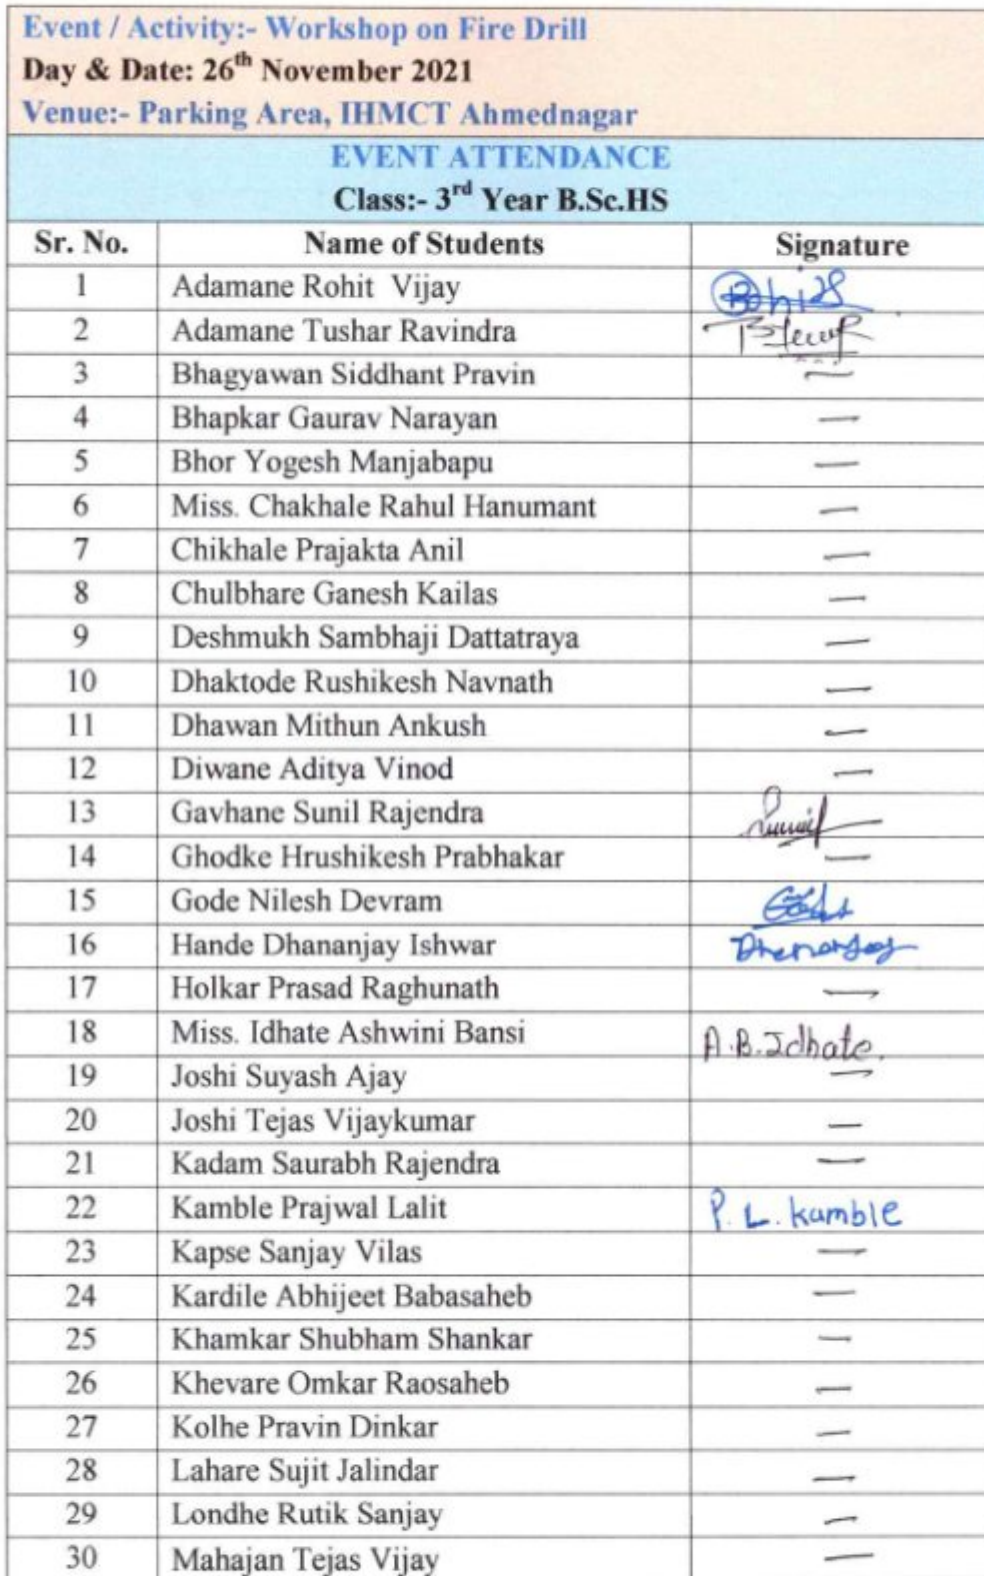 Event / Activity:- Workshop on Fire Drill
Day & Date: 26th November 2021
Venue:- Parking Area, IHMCT Ahmednagar
EVENT ATTENDANCE
Class:- 3rd Year B.Sc.HS
Sr. No. Name of Students Signature
1 Adamane Rohit Vijay
2 Adamane Tushar Ravindra
3 Bhagyawan Siddhant Pravin —
4 Bhapkar Gaurav Narayan —
5 Bhor Yogesh Manjabapu —
6 Miss. Chakhale Rahul Hanumant —
7 Chikhale Prajakta Anil —
8 Chulbhare Ganesh Kailas —
9 Deshmukh Sambhaji Dattatraya —
10 Dhaktode Rushikesh Navnath —
11 Dhawan Mithun Ankush —
12 Diwane Aditya Vinod —
13 Gavhane Sunil Rajendra
14 Ghodke Hrushikesh Prabhakar —
15 Gode Nilesh Devram
16 Hande Dhananjay Ishwar
17 Holkar Prasad Raghunath —
18 Miss. Idhate Ashwini Bansi A.B.Idhate.
19 Joshi Suyash Ajay —
20 Joshi Tejas Vijaykumar —
21 Kadam Saurabh Rajendra —
22 Kamble Prajwal Lalit P. L. kamble
23 Kapse Sanjay Vilas —
24 Kardile Abhijeet Babasaheb —
25 Khamkar Shubham Shankar —
26 Khevare Omkar Raosaheb —
27 Kolhe Pravin Dinkar —
28 Lahare Sujit Jalindar —
29 Londhe Rutik Sanjay —
30 Mahajan Tejas Vijay —